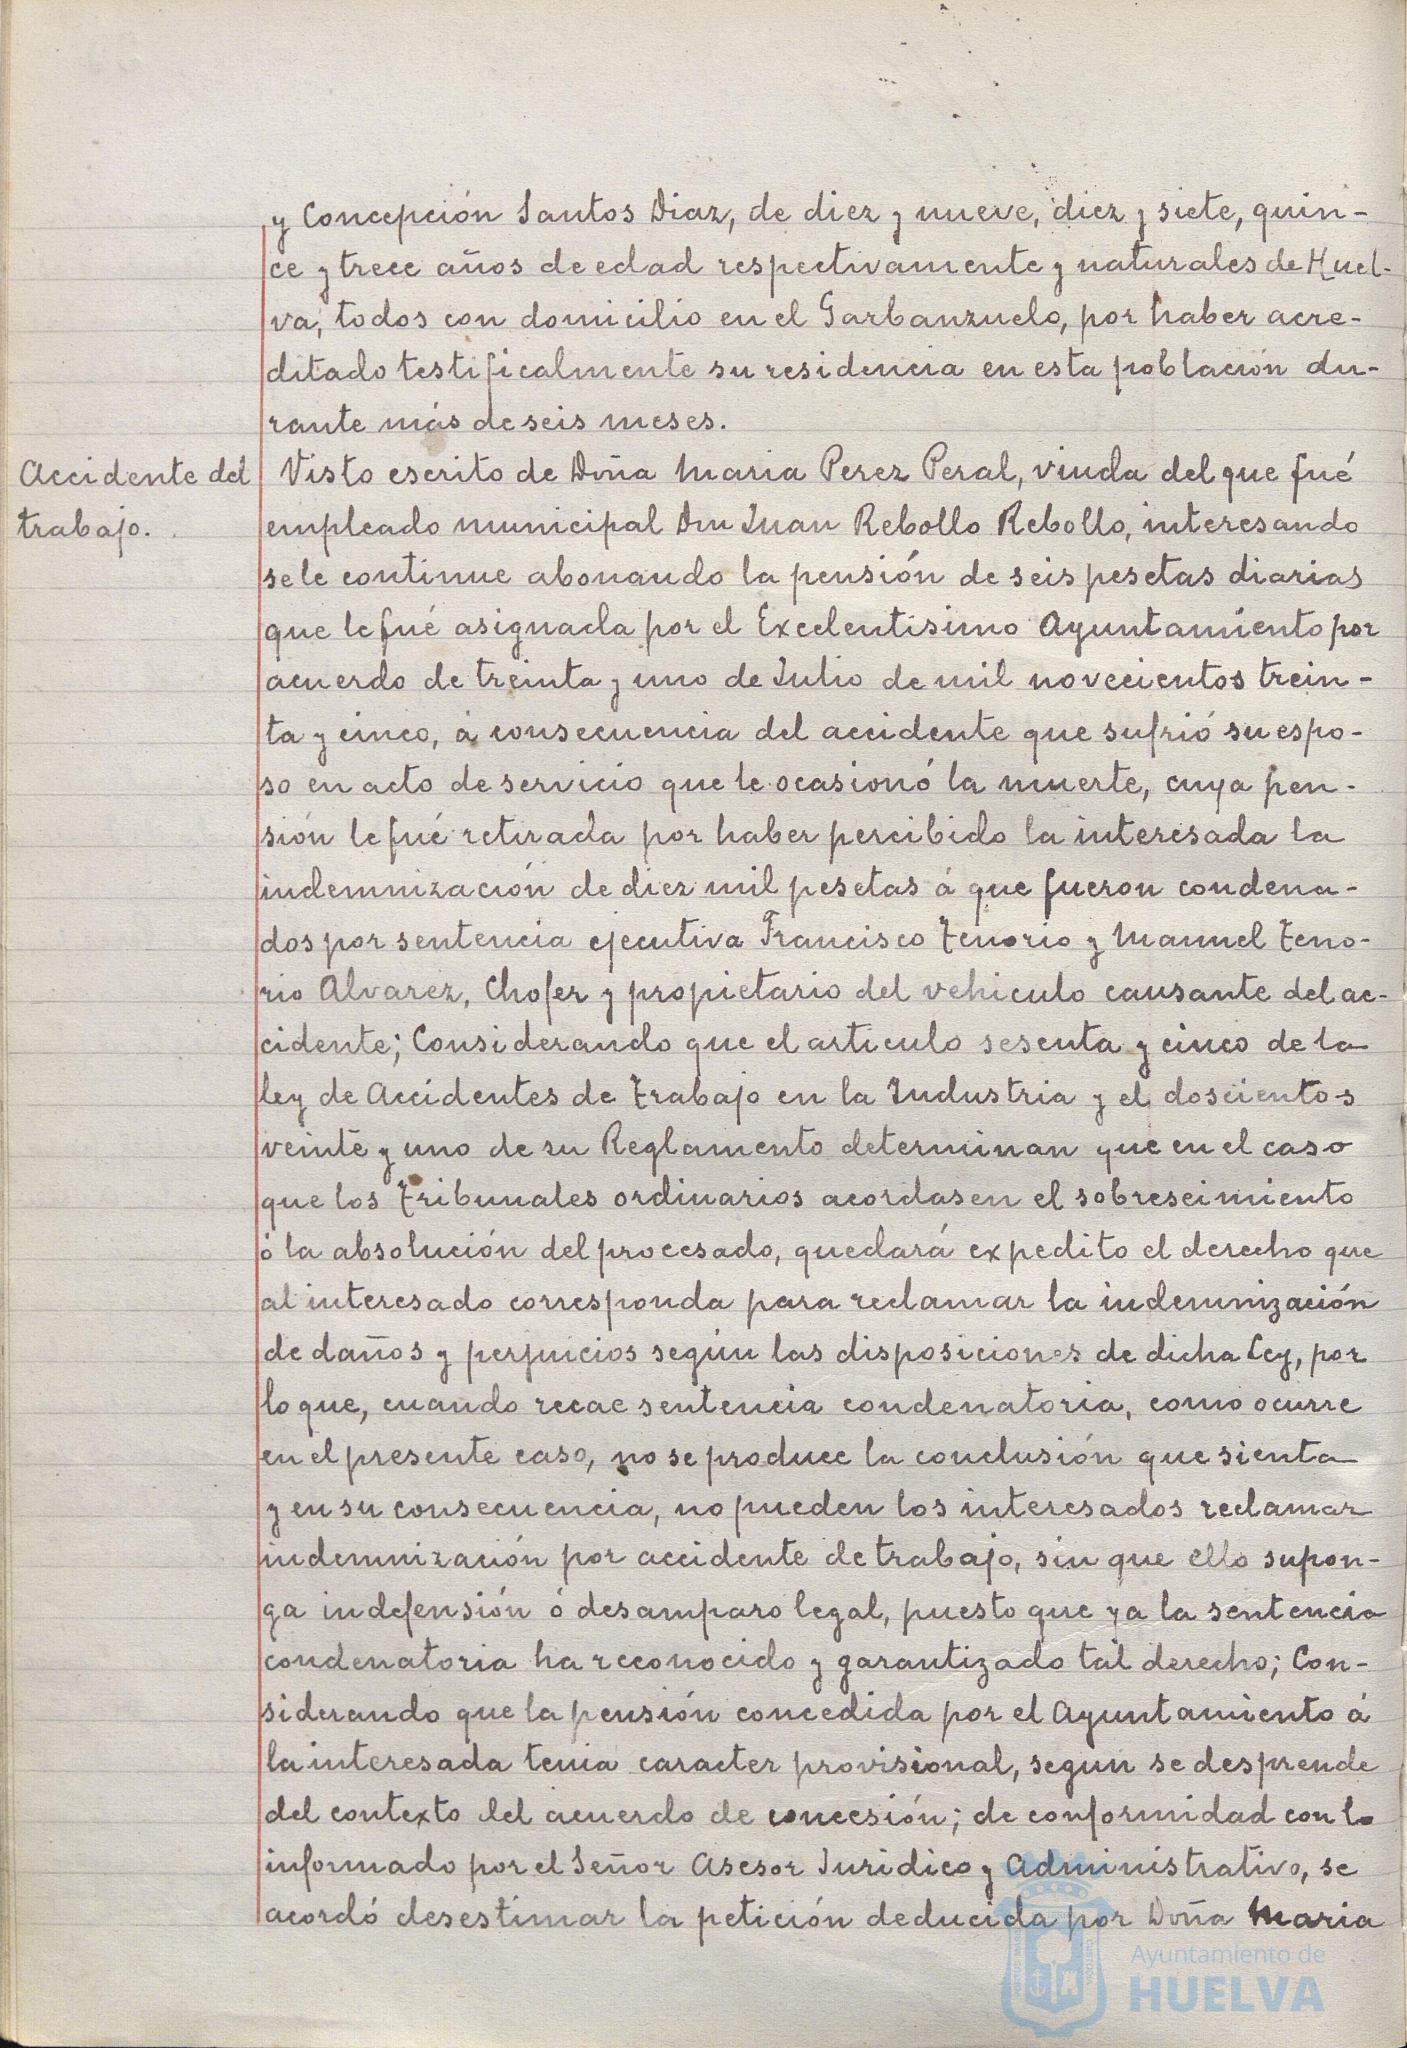 y Concepción Santos Diaz, de diez y nueve, diez y siete, quin-
ce y trece años de edad respectivamente y naturales de Huel-
va, todos con domicilio en el Garbanzuelo, por haber acre-
ditado testificalmente su residencia en esta población du-
rante más de seis meses.
Accidente del
trabajo.
Visto escrito de Doña Maria Perez Peral, viuda del que fué
empleado municipal Don Juan Rebollo Rebollo, interesando
se le continue abonando la pensión de seis pesetas diarias
que le fué asignada por el Excelentisimo Ayuntamiento por
acuerdo de treinta y uno de Julio de mil novecientos trein-
ta y cinco, á consecuencia del accidente que sufrió su espo-
so en acto de servicio que le ocasionó la muerte, cuya pen-
sión le fué retirada por haber percibido la interesada la
indemnización de diez mil pesetas á que fueron condena-
dos por sentencia ejecutiva Francisco Tenorio y Manuel Teno-
rio Alvarez, Chofer y propietario del vehiculo causante del ac-
cidente; Considerando que el articulo sesenta y cinco de la
ley de Accidentes de Trabajo en la Industria y el doscientos
veinte y uno de su Reglamento determinan que en el caso
que los Tribunales ordinarios acordasen el sobreseimiento
ó la absolución del procesado, quedará expedito el derecho que
al interesado corresponda para reclamar la indemnización
de daños y perjuicios según las disposiciones de dicha Ley, por
lo que, cuando recae sentencia condenatoria, como ocurre
en el presente caso, no se produce la conclusión que sienta
y en su consecuencia, no pueden los interesados reclamar
indemnización por accidente de trabajo, sin que ello supon-
ga indefensión ó desamparo legal, puesto que ya la sentencia
condenatoria ha reconocido y garantizado tal derecho; Con-
siderando que la pensión concedida por el Ayuntamiento á
la interesada tenia caracter provisional, segun se desprende
del contexto del acuerdo de concesión; de conformidad con lo
informado por el Señor Asesor Juridico y Administrativo, se
acordó desestimar la petición deducida por Doña Maria
Ayuntamiento de
HUELVA